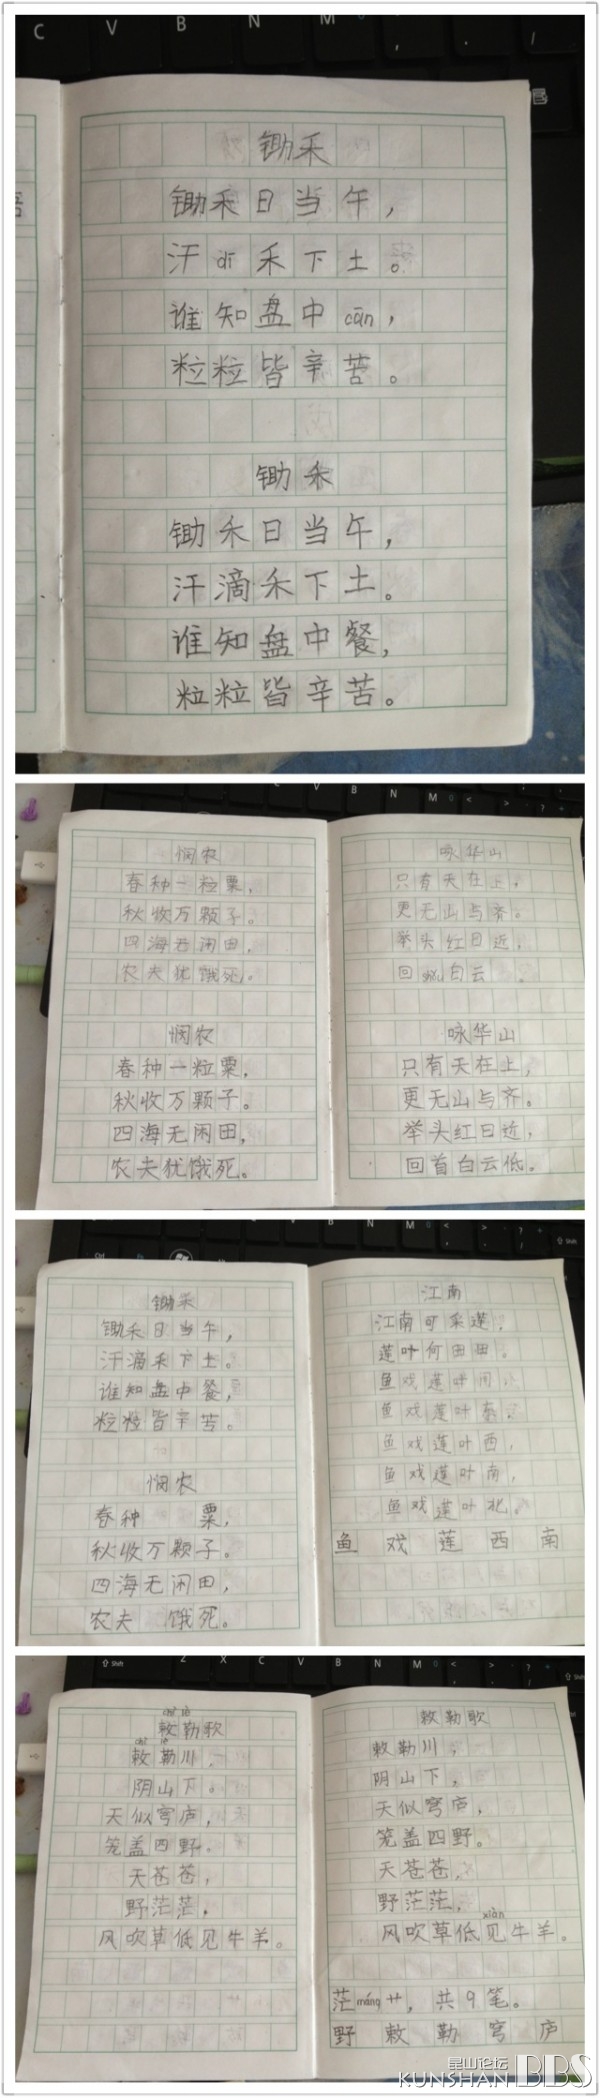 C V B N M
锄禾
锄禾日当午，
汗dī禾下土。
谁知盘中cān，
粒粒皆辛苦。
锄禾
锄禾日当午，
汗滴禾下土。
谁知盘中餐，
粒粒皆辛苦。
C V B N M
悯农
春种一粒粟，
秋收万颗子。
四海无闲田，
农夫犹饿死。
悯农
春种一粒粟，
秋收万颗子。
四海无闲田，
农夫犹饿死。
咏华山
只有天在上，
更无山与齐。
举头红日近，
回shǒu白云 。
咏华山
只有天在上，
更无山与齐。
举头红日近，
回首白云低。
V B N M
锄禾
锄禾日当午，
汗滴禾下土。
谁知盘中餐，
粒粒皆辛苦。
悯农
春种 粟，
秋收万颗子。
四海无闲田，
农夫 饿死。
江南
江南可采莲，
莲叶何田田。
鱼戏莲叶间，
鱼戏莲叶东，
鱼戏莲叶西，
鱼戏莲叶南，
鱼戏莲叶北。
鱼 戏 莲 西 南
Shift Z X C V B N M Shift
敕勒歌
敕勒川，
阴山下。
天似穹庐，
笼盖四野。
天苍苍，
野茫茫，
风吹草低见牛羊。
敕勒歌
敕勒川，
阴山下，
天似穹庐，
笼盖四野。
天苍苍，
野茫茫，
xiàn
风吹草低见牛羊。
茫máng艹，共9笔。
野 敕 勒 穹 庐
昆山论坛
KUNSHAN BBS